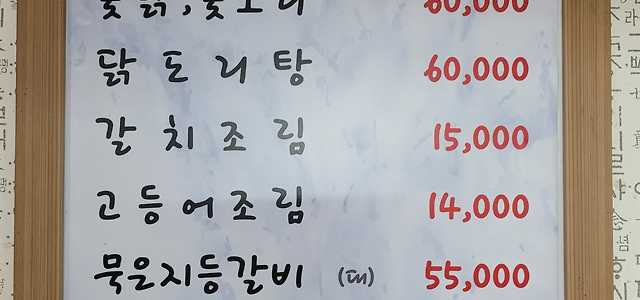 60,000
닭도리탕 60,000
갈치조림 15,000
고등어조림 14,000
묵은지등갈비 (대) 55,000